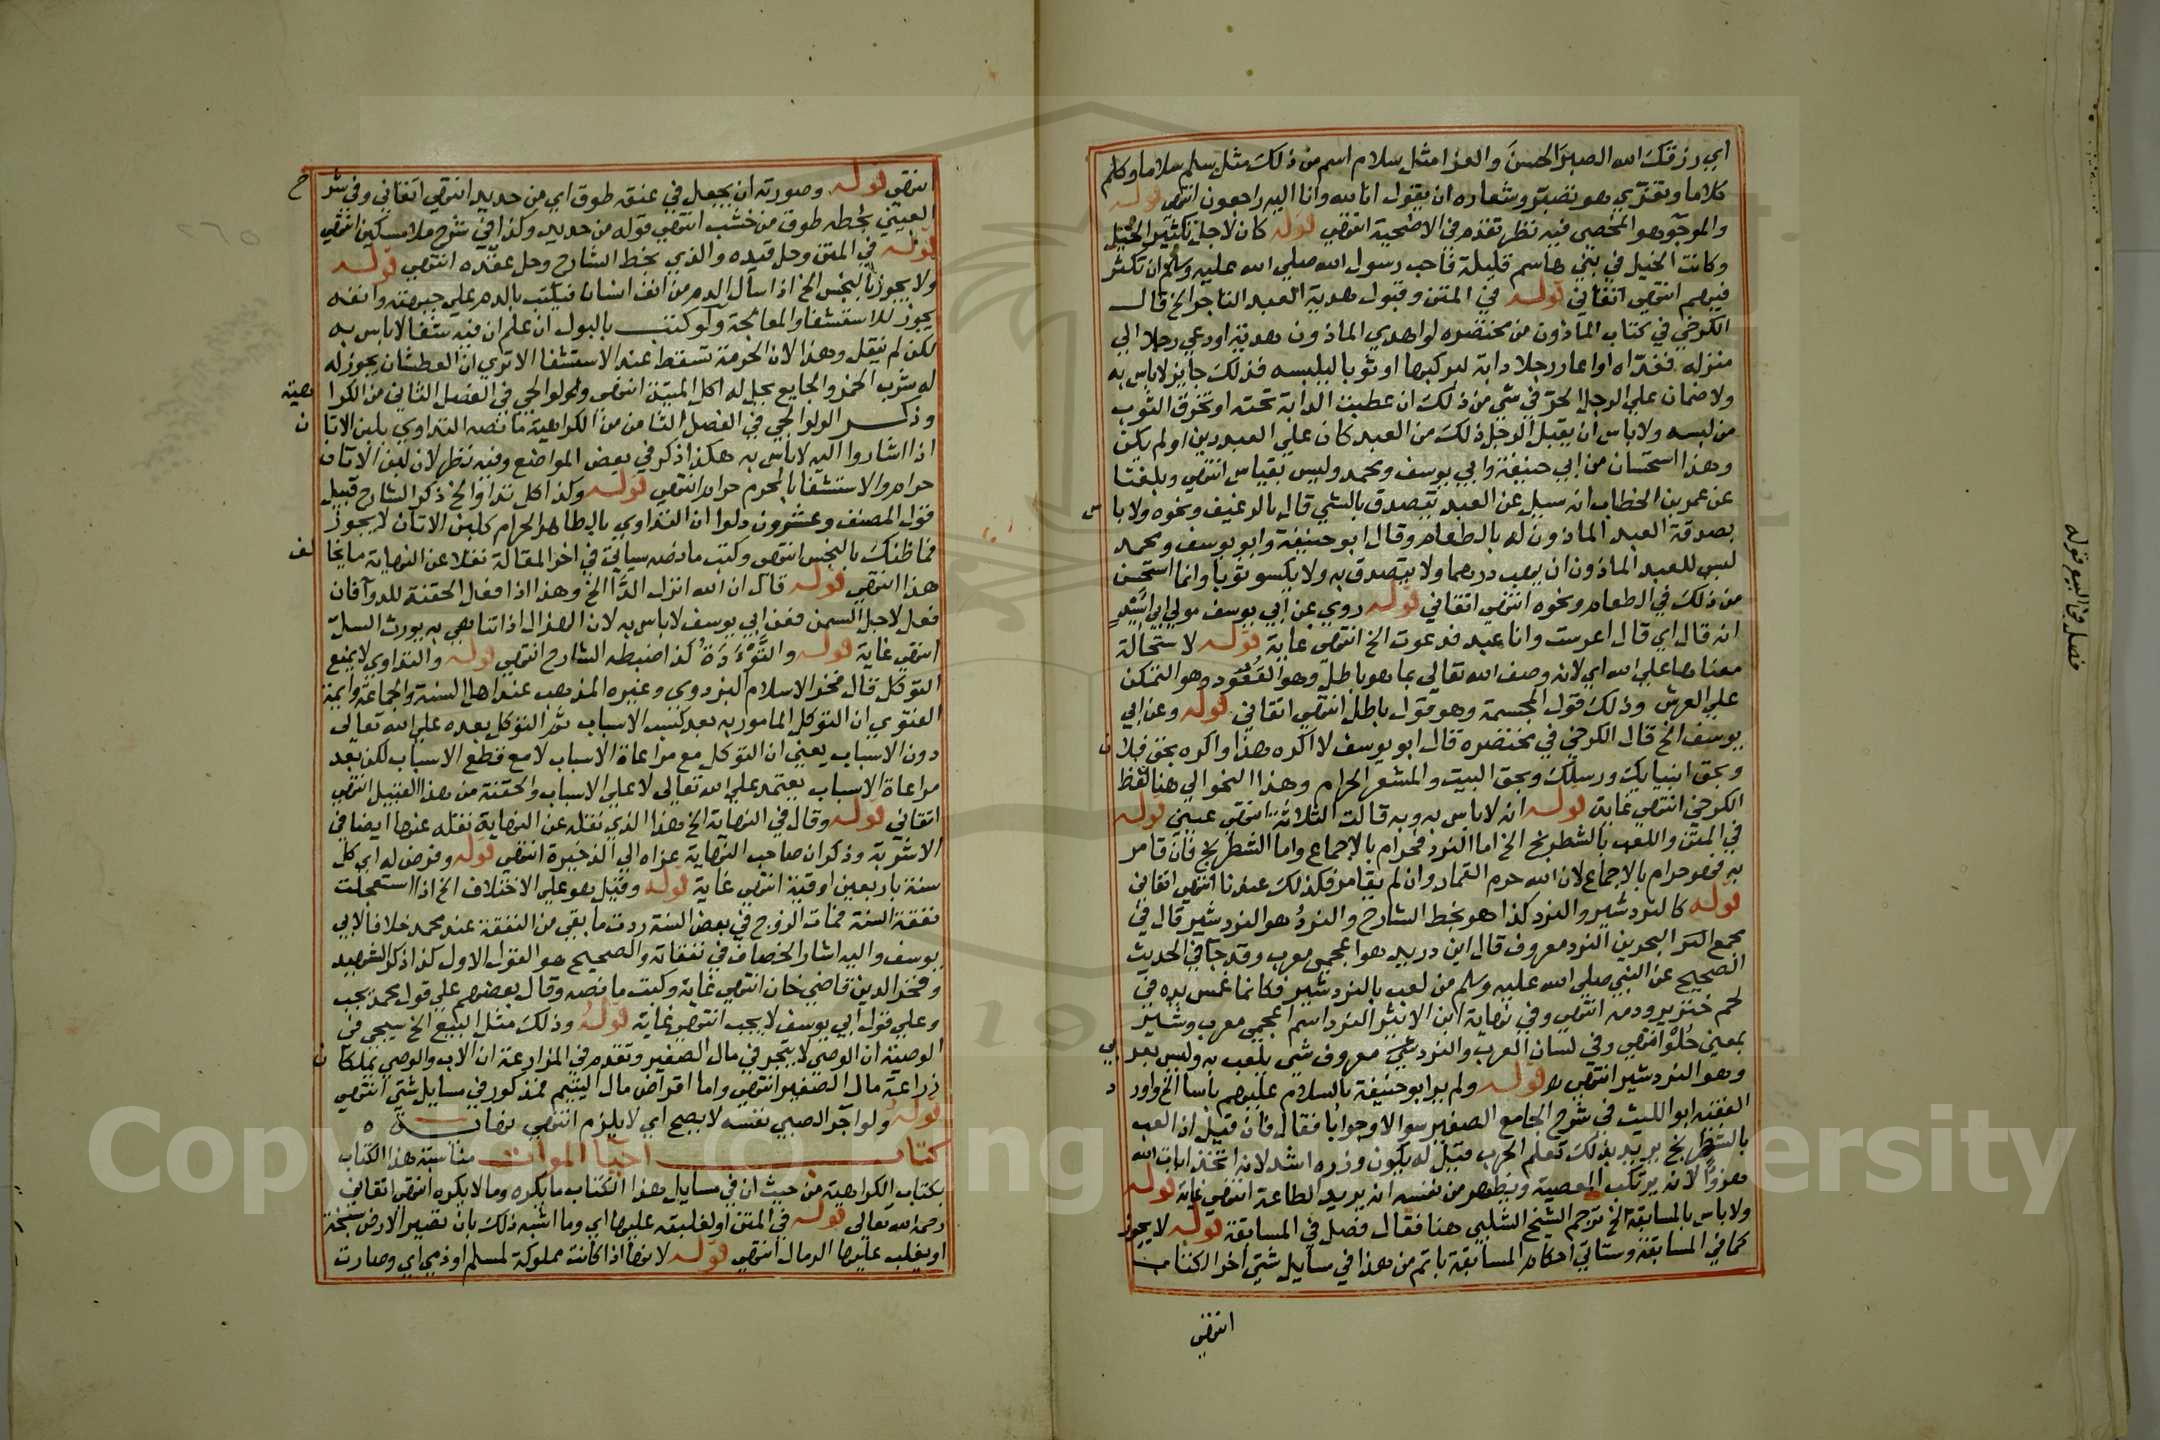 اي رزقك الله الصبر الحسن والعزا مثل سلام اسم من ذلك مثل سلم سلاما وكلم
كلاما وتعزي هو تصبر وشعاره ان يقول انا لله وانا اليه راجعون انتهى قوله
والموجؤ هو المخصي فيه نظر تقدم في الاضحية انتهى قوله كان لاجل تكثير الخيل
وكانت الخيل في بني هاشم قليلة فاحب رسول الله صلي الله عليه وسلم ان تكثر
فيهم انتهى اتقاني قوله في المتن وقبول هدية العبد التاجر الخ قال
الكرخي في كتاب الماذون من مختصره لو اهدي الماذون هدية او دعي رجلا الي
منزله فغداه او اعار رجلا دابة ليركبها او ثوبا ليلبسه فذلك جايز لاباس به
ولا ضمان علي الرجل الحر في شي من ذلك ان عطبت الدابة تحته او تخرق الثوب
من لبسه ولا باس ان يقبل الرجل ذلك من العبد كان علي العبد دين او لم يكن
وهذا استحسان من ابي حنيفة وابي يوسف ومحمد وليس بقياس انتهى وبلغنا
عن عمر بن الخطاب انه سيل عن العبد يتصدق بالشي قال بالرغيف ونحوه ولا با
س
بصدقة العبد الماذون له بالطعام وقال ابو حنيفة وابو يوسف ومحمد
ليس للعبد الماذون ان يهب درهما ولا يتصدق به ولا يكسو ثوبا وانما استحسن
من ذلك في الطعام ونحوه انتهى اتقاني قوله روي عن ابي يوسف مولي ابي اسيد
انه قال اي قال اعرست وانا عبد فدعوت الخ انتهى غاية قوله لاستحالة
معناها علي الله اي لانه وصف الله تعالي بما هو باطل وهو القعود وهو التمكن
علي العرش وذلك قول المجسمة وهو قول باطل انتهى اتقاني قوله وعن ابي
يوسف الخ قال الكرخي في مختصره قال ابو يوسف لا اكره هذا واكره بحق فلا
ن
وبحق انبيايك ورسلك وبحق البيت والمشعر الحرام وهذا النحو الي هنا لفظ
الكرخي انتهى غاية قوله انه لا باس به وبه قالت الثلاثة انتهى عيني قوله
في المتن واللعب بالشطرنج الخ اما النرد فحرام بالاجماع واما الشطرنج فان قامر
به فهو حرام بالاجماع لان الله حرم القمار وان لم يقامر فكذلك عندنا انتهى اتقاني
قوله كالنردشير والنرد كذا هو بخط الشارح والنرد هو النردشير قال في
مجمع البحرين النرد معروف قال ابن دريد هو اعجمي معرب وقد جا في الحديث
الصحيح عن النبي صلي الله عليه وسلم من لعب بالنردشير فكانما غمس يده في
لحم خنزير ودمه انتهى وفي نهاية ابن الاثير النرد اسم اعجمي معرب وشير
بمعني حلو انتهى وفي لسان العرب والنرد شي معروف شي يلعب به وليس بعر
بي
وهو النردشير انتهى قوله ولم ير ابو حنيفة بالسلام عليهم باسا الخ واور
د
الفقيه ابو الليث في شرح الجامع الصغير سوالا وجوابا فقال فان قيل اذا لعب
بالشطرنج يريد بذلك تعلم الحرب قيل له يكون وزره اشد لانه اتخذ ايات الله
هزوا لانه يرتكب المعصية ويظهر من نفسه انه يريد الطاعة انتهى غاية قوله
ولا باس بالمسابقة الخ ترجم الشيخ الشلبي هنا فقال فصل في المسابقة قوله لا يجوز
كما في المسابقة وستاتي احكام المسابقة باتم من هذا في مسايل شتي اخر الكتاب
انتهى
فصل في البيع قوله
انتهى قوله وصورته ان يجعل في عنقه طوق اي من حديد انتهى اتقاني وفي شر
ح
العيني بخطه طوق من خشب انتهى قوله من حديد وكذا في شرح ملا مسكين انتهى
قوله في المتن وحل قيده والذي بخط الشارح وحل عقده انتهى قوله
ولا يجوز بالنجس الخ اذا سال الدم من انف انسان فيكتب بالدم علي جبهته وانفه
يجوز للاستشفا والمعالجة ولو كتب بالبول ان علم ان فيه شفا لا باس به
لكن لم ينقل وهذا لان الحرمة تسقط عند الاستشفا الا تري ان العطشان يجوز له
له شرب الخمر والجايع يحل له اكل الميتة انتهى ولوالجي في الفصل الثاني من الكرا
هية
وذكر الولوالجي في الفصل الثامن من الكراهية ما نصه التداوي بلبن الاتا
ن
اذا اشاروا اليه لا باس به هكذا ذكر في بعض المواضع وفيه نظر لان لبن الاتان
حرام والاستشفا بالمحرم حرام انتهى قوله وكذا كل تداو الخ ذكر الشارح قبيل
قول المصنف وعشرون دلوا ان التداوي بالطاهر الحرام كلبن الاتان لا يجوز
فما ظنك بالنجس انتهى وكتب ما نصه سياتي في اخر المقالة نقلا عن النهاية ما يخا
لف
هذا انتهى قوله قال ان الله انزل الدا الخ وهذا اذا فعل الحقنة للدوا فان
فعل لاجل السمن فعن ابي يوسف لا باس به لان الهزال اذا تناهي به يورث السل
انتهى غاية قوله والتؤدة كذا ضبطه الشارح انتهى قوله والتداوي لا يمنع
التوكل قال فخر الاسلام البزدوي وغيره المذهب عند اهل السنة والجماعة وايمة
الفتوي ان التوكل المامور به بعد كسب الاسباب ثم التوكل بعده علي الله تعالي
دون الاسباب يعني ان التوكل مع مراعاة الاسباب لا مع قطع الاسباب لكن بعد
مراعاة الاسباب يعتمد علي الله تعالي لا علي الاسباب والحقنة من هذا القبيل انتهى
اتقاني قوله وقال في النهاية الخ وهذا الذي نقله عن النهاية نقله عنها ايضا في
الاشربة وذكر ان صاحب النهاية عزاه الي الذخيرة انتهى قوله وفرض له اي كل
سنة باربعين اوقية انتهى غاية قوله وقيل هو علي الاختلاف الخ اذا استعجلت
نفقة السنة فمات الزوج في بعض السنة ردت ما بقي من النفقة عند محمد خلافا لابي
يوسف واليه اشار الخصاف في نفقاته والصحيح هو القول الاول كذا ذكر الشهيد
وفخر الدين قاضي خان انتهى غاية وكتب ما نصه وقال بعضهم علي قول محمد يجب
وعلي قول ابي يوسف لا يجب انتهى غاية قوله وذلك مثل البيع الخ سيجي في
الوصية ان الوصي لا يتجر في مال الصغير وتقدم في المزارعة ان الاب والوصي يملكا
ن
زراعة مال الصغير انتهى واما اقراض مال اليتيم فمذكور في مسايل شتي انتهى
قوله ولو آجر الصبي نفسه لا يصح اي لا يلزم انتهى نهاية ه
كتاب احيا الموات مناسبة هذا الكتاب
بكتاب الكراهية من حيث ان في مسايل هذا الكتاب ما يكره وما لا يكره انتهى اتقاني
رحمه الله تعالي قوله في المتن او لغلبته عليها اي وما اشبه ذلك بان تصير الارض سبخة
او يغلب عليها الرمال انتهى قوله لانها اذا كانت مملوكة لمسلم او ذمي اي وصارت